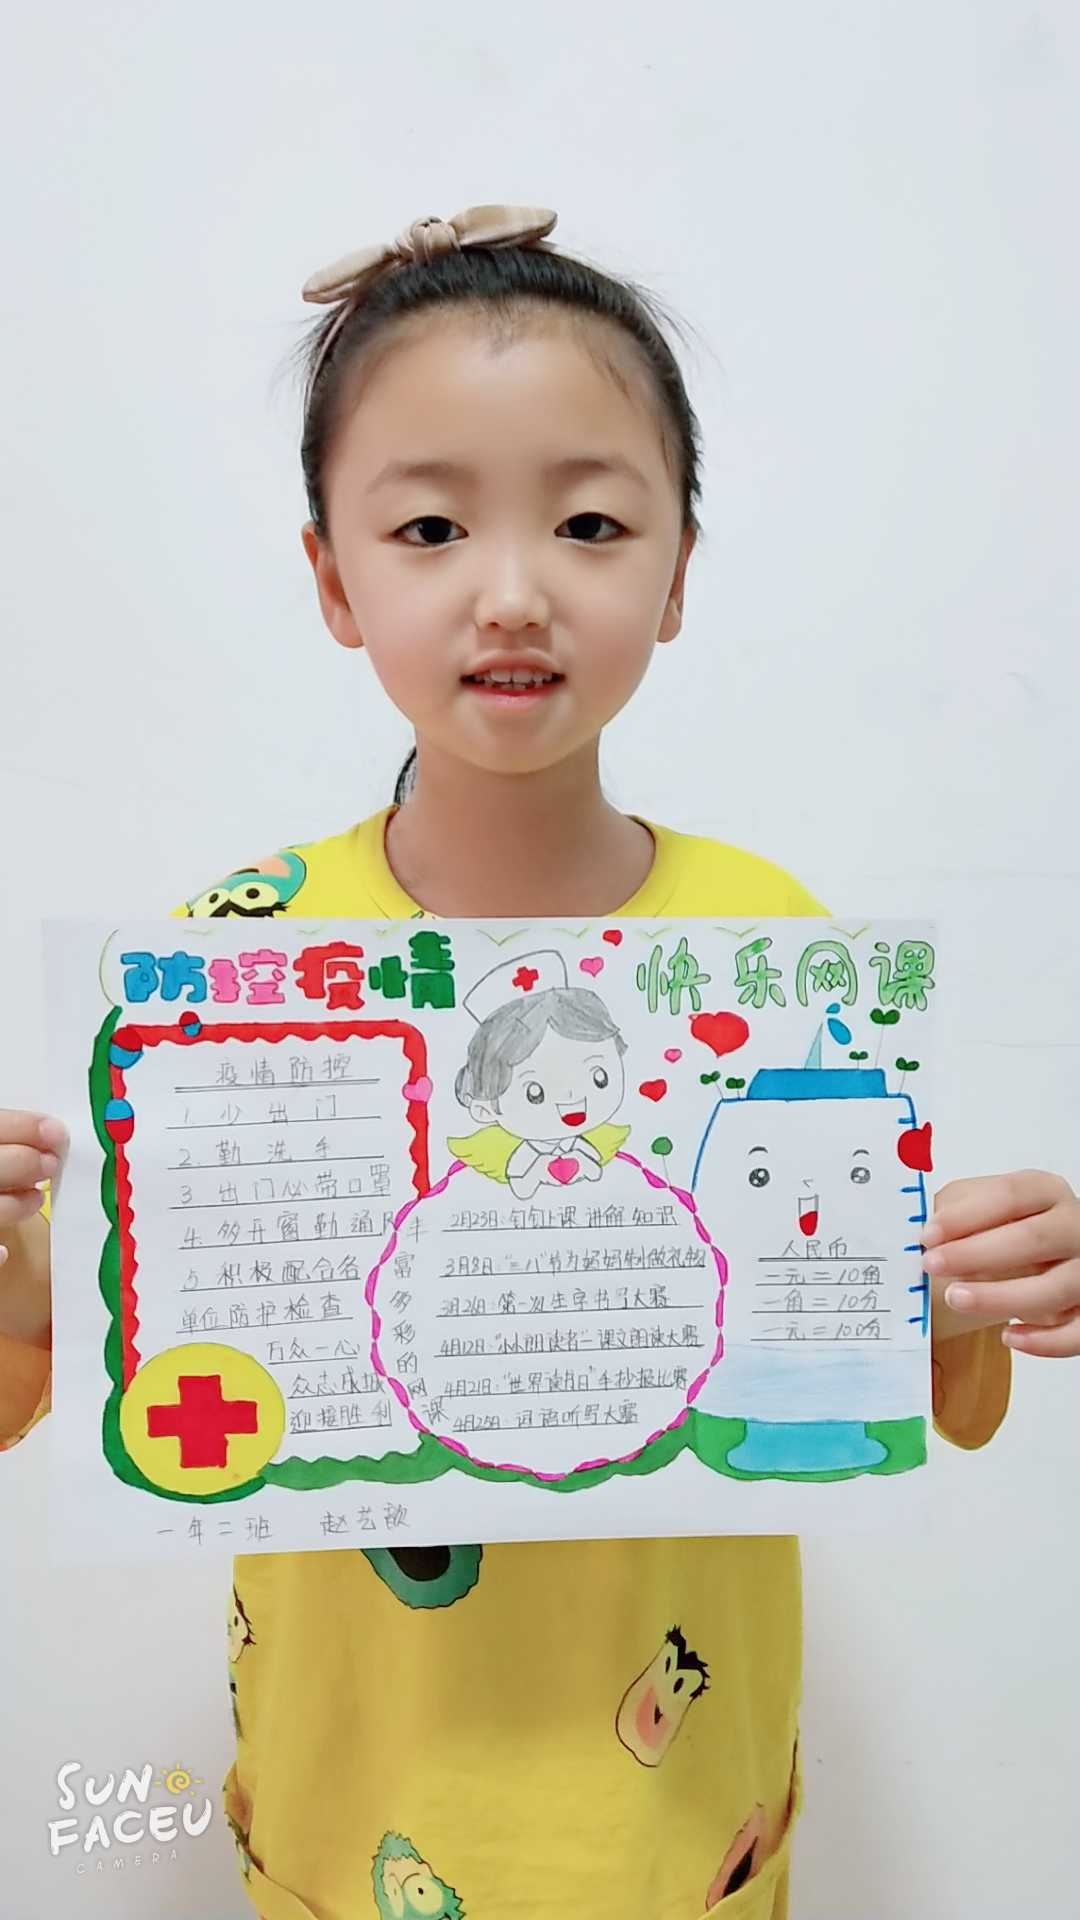 防控疫情
快乐网课
疫情防控
1. 少出门
2. 勤洗手
3 出门必带口罩
4. 多开窗勤通风
5 积极配合各
单位防护检查
万众一心
众志成城
迎接胜利
丰富多彩的网课
2月23日:钉钉上课 讲解知识
3月8日:"三八"节为妈妈制做礼物
3月26日:第一次生字书写大赛
4月12日:"小小朗读者"一课文朗读大赛
4月21日:"世界读书日"手抄报比赛
4月25日:词语听写大赛
人民币
一元=10角
一角=10分
一元=100分
一年二班 赵艺歆
SUN
FACEU
CAMERA